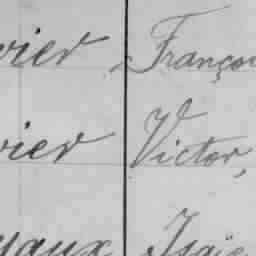 vier François
vier Victor,
yaux Isaïe